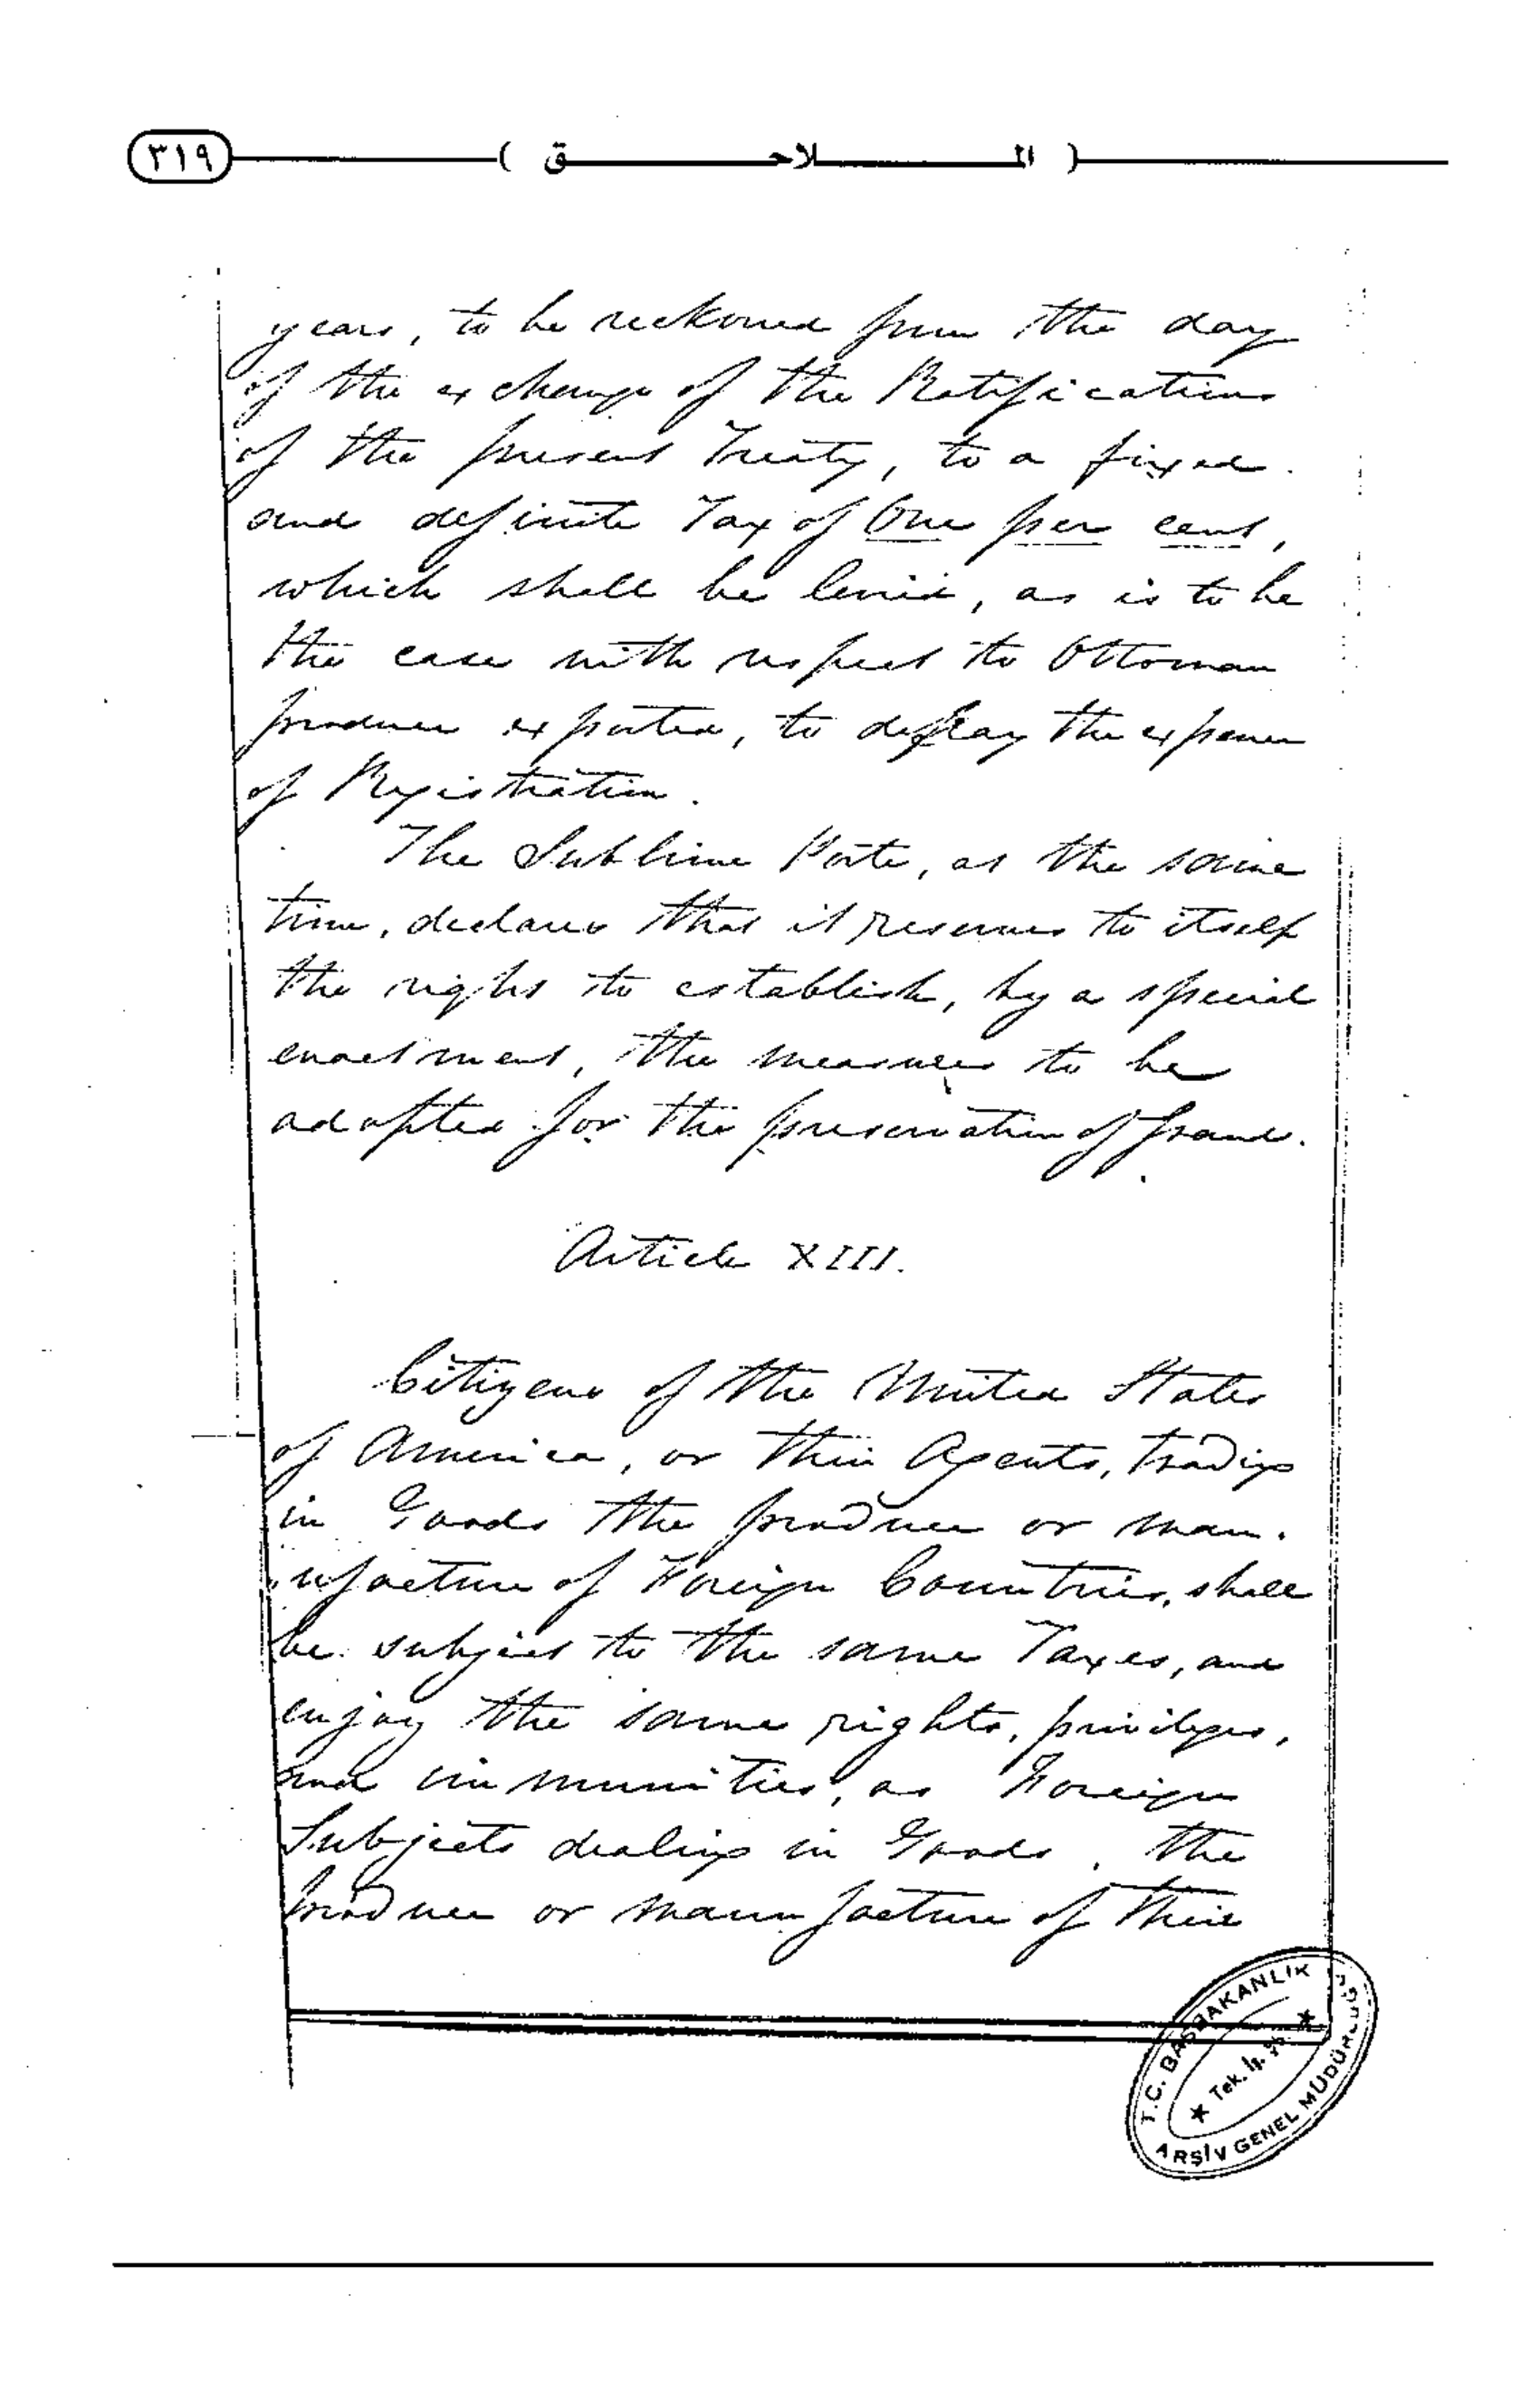 ٣١٩
( الملاحق )
years, to be reckoned from the day
of the exchange of the Ratifications
of the present Treaty, to a fixed
and definite Tax of One per cent,
which shall be levied, as is to be
the case with respect to Ottoman
produce exported, to defray the expenses
of Registration.
The Sublime Porte, at the same
time, declares that it reserves to itself
the right to establish, by a special
enactment, the measures to be
adopted for the preservation of fraud.
Article XIII.
Citizens of the United States
of America, or their Agents, trading
in Goods the produce or man-
ufacture of Foreign Countries, shall
be subject to the same Taxes, and
enjoy the same rights, privileges,
and immunities, as Foreign
Subjects dealing in Goods, the
produce or manufacture of their
T.C. BAŞBAKANLIK
ARŞİV GENEL MÜDÜRLÜĞÜ